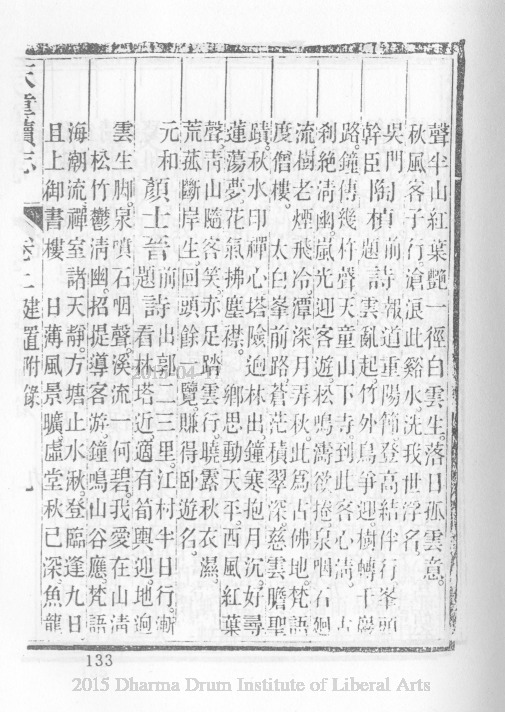 聲半山紅葉艷一徑白雲生落日孤雲意
秋風客子行滄浪此谿水洗我世浮名
吳門　前詩報道重陽節登高結伴行峯頭
幹臣陶楨題詩雲亂起竹外鳥爭迎樹轉千巖
路鐘傳幾杵聲天童山下寺到此客心清　古
刹絶清幽嵐光迎客遊松鳴濤欲捲泉咽石廻
流樹老煙飛冷潭深月弄秋此爲古佛地梵語
度僧樓　太白峯前路蒼茫積翠深慈雲瞻聖
蹟秋水印禪心塔險迴林出鐘寒抱月沉好尋
蓮蕩夢花氣拂塵襟　鄉思動天平西風紅葉
聲青山隨客笑赤足踏雲行曉露秋衣濕
荒菰斷岸生回頭餘一覽賺得卧遊名
元和顏士晉題前詩出郭二三里江村半日行漸
看林塔近適有筍輿迎地迥
雲生脚泉噴石咽聲溪流一何碧我愛在山清
松竹鬱清幽招提導客游鐘鳴山谷應梵語
海潮流禪室諸天靜方塘止水湫登臨逢九日
且上御書樓　日薄風景曠虛堂秋已深魚龍
天童續志　卷二建置附錄　九
133
2015 Dharma Drum Institute of Liberal Arts